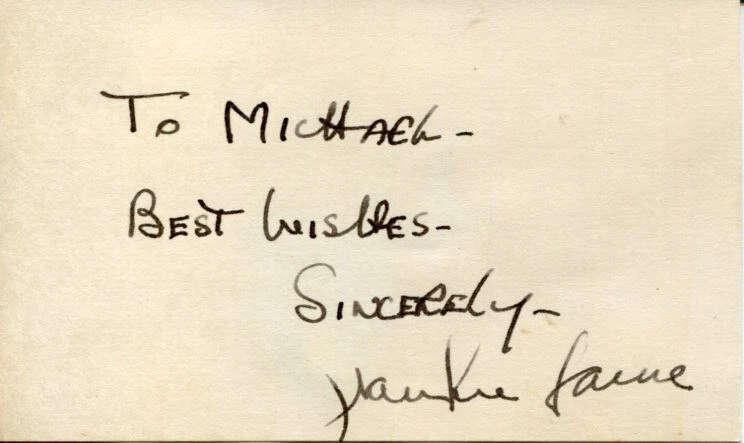 To MICHAEL -
BEST WISHES -
SINCERELY -
Frankie Laine